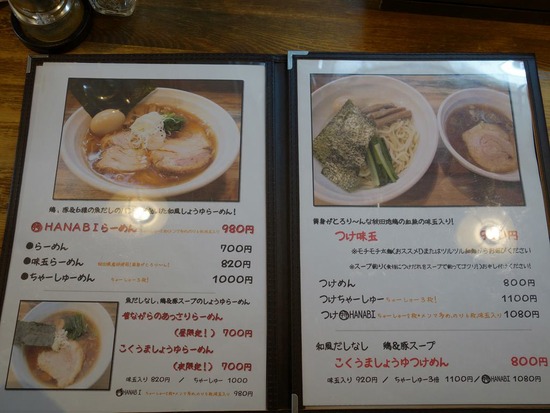 鶏、豚&6種の魚だしの
いた和風しょうゆらーめん!
HANABIらーめん 980円
らーめん 700円
味玉らーめん 820円
ちゃーしゅーめん 1000円
魚だしなし、鶏&豚スープのしょうゆらーめん
昔ながらのあっさりらーめん
(昼限定!) 700円
こくうましょうゆらーめん
(夜限定!) 700円
味玉入り 820円 / ちゃーしゅー 1000
HANABI
黄身がとろり〜んな秋田地鶏の紅鮭の味玉入り!
つけ味玉
※モチモチ太麺(おススメ)またはツルツル細麺からお選びください
※スープ割り(食後につけだれをスープで割ってゴクリ)お申し付けください
つけめん 800円
つけちゃーしゅー 1100円
つけHANABI 1080円
和風だしなし 鶏&豚スープ
こくうましょうゆつけめん 800円
味玉入り 920円 / ちゃーしゅー3倍 1100円 / HANABI 1080円